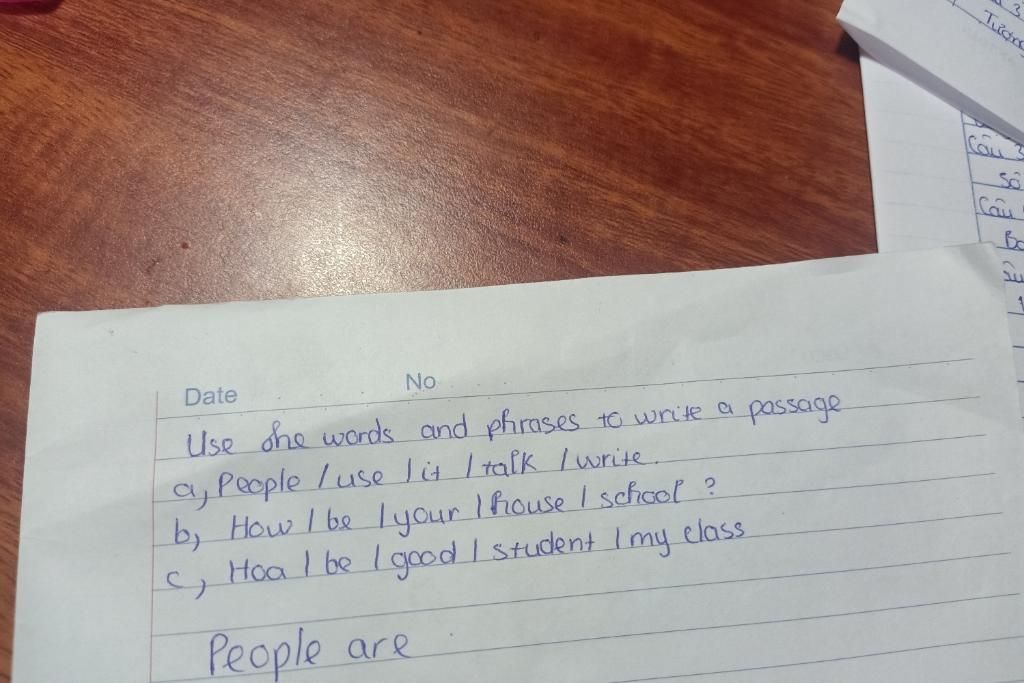 Date No
Use she words and phrases to write a passage
a, People / use / it / talk / write.
b, How / be / your / house / school ?
c, Hoa / be / good / student / my class
People are
Câu 3
Số
Câu